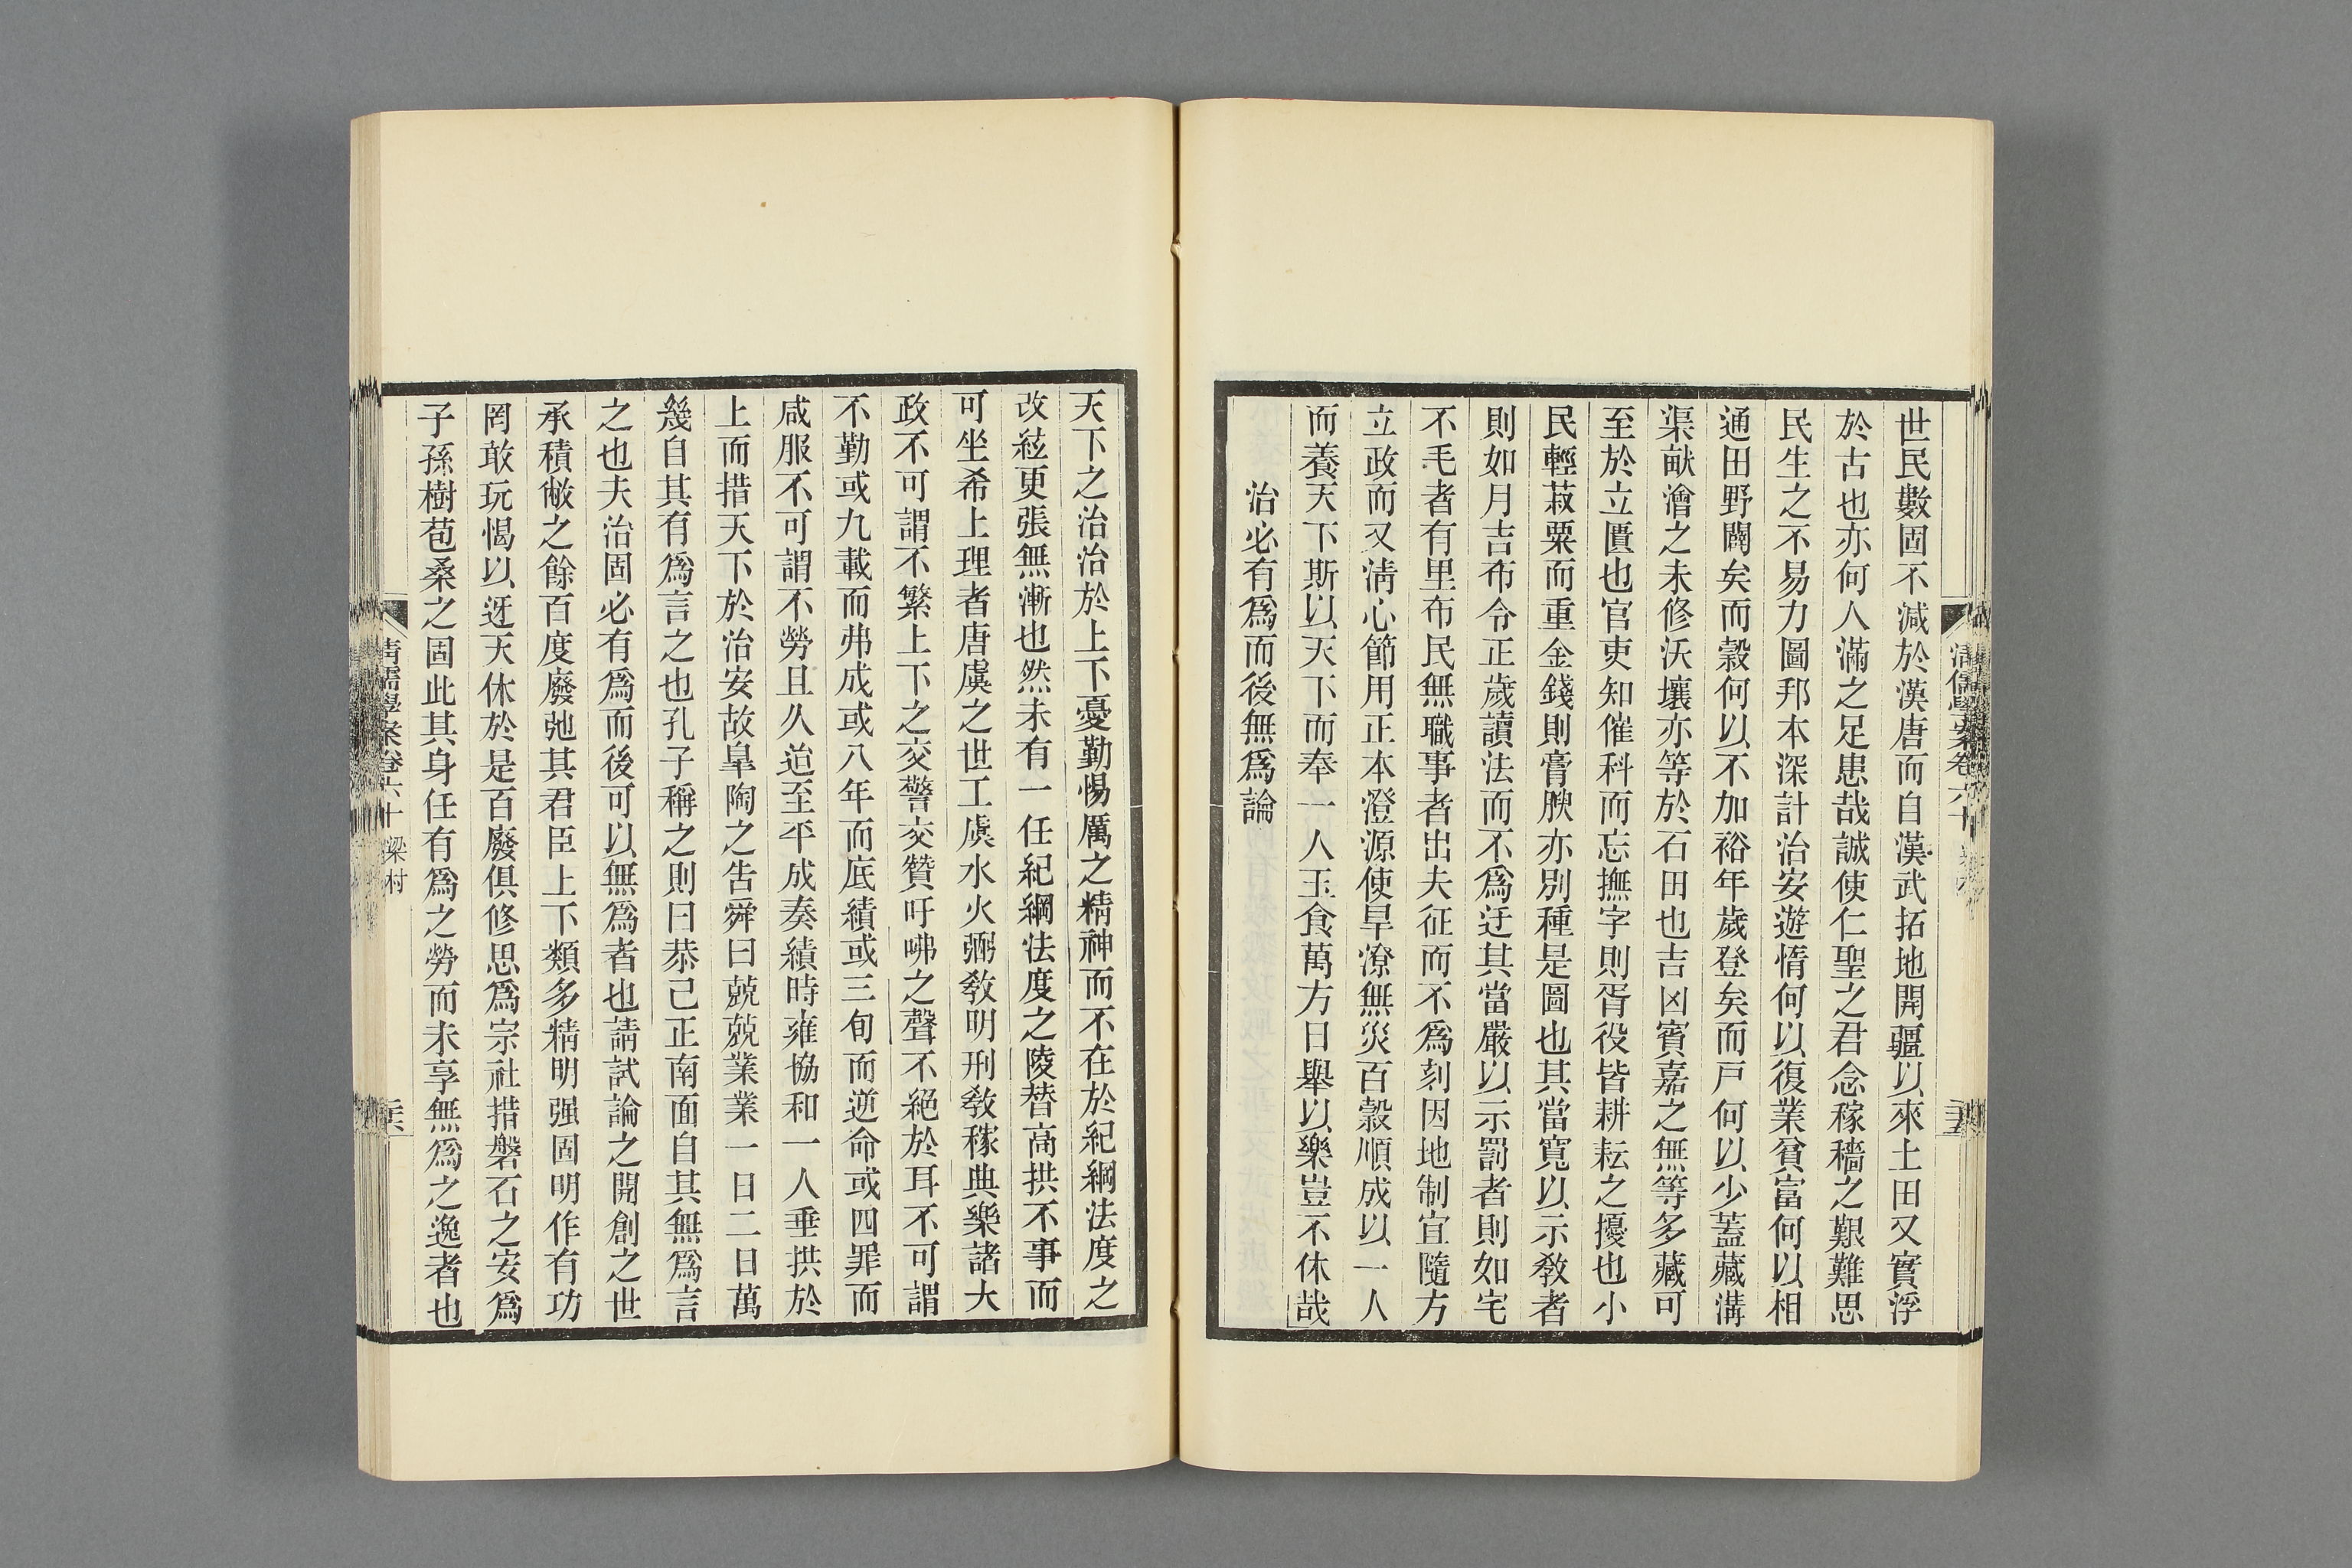 世民數固不減於漢唐而自漢武拓地開疆以來土田又實浮
於古也亦何人滿之足患哉誠使仁聖之君念稼穡之艱難思
民生之不易力圖邦本深計治安遊惰何以復業貧富何以相
通田野闢矣而穀何以不加裕年歲登矣而戸何以少蓋藏溝
渠畎澮之未修沃壤亦等於石田也吉凶賓嘉之無等多藏可
至於立匱也官吏知催科而忘撫字則胥役皆耕耘之擾也小
民輕菽粟而重金錢則膏腴亦別種是圖也其當寬以示敎者
則如月吉布令正歲讀法而不爲迂其當嚴以示罰者則如宅
不毛者有里布民無職事者出夫征而不爲刻因地制宜隨方
立政而又淸心節用正本澄源使旱潦無災百穀順成以一人
而養天下斯以天下而奉一人玉食萬方日舉以樂豈不休哉
治必有爲而後無爲論
天下之治治於上下憂勤惕厲之精神而不在於紀綱法度之
改絃更張無漸也然未有一任紀綱法度之陵替高拱不事而
可坐希上理者唐虞之世工虞水火弼敎明刑敎稼典樂諸大
政不可謂不繁上下之交警交贊吁咈之聲不絕於耳不可謂
不勤或九載而弗成或八年而底績或三旬而逆命或四罪而
咸服不可謂不勞且久迨至平成奏績時雍協和一人垂拱於
上而措天下於治安故臯陶之告舜曰兢兢業業一日二日萬
幾自其有爲言之也孔子稱之則曰恭己正南面自其無爲言
之也夫治固必有爲而後可以無爲者也請試論之開創之世
承積敝之餘百度廢弛其君臣上下類多精明强固明作有功
罔敢玩愒以迓天休於是百廢俱修思爲宗社措磐石之安爲
子孫樹苞桑之固此其身任有爲之勞而未享無爲之逸者也
清儒學案卷六十 梁村